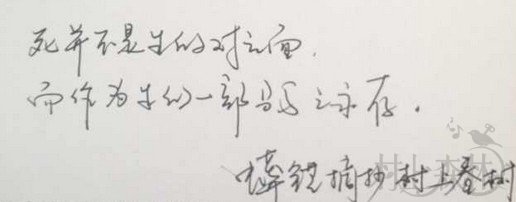 死并不是生的对立面，
而作为生的一部分与之永存。
摘抄村上春树